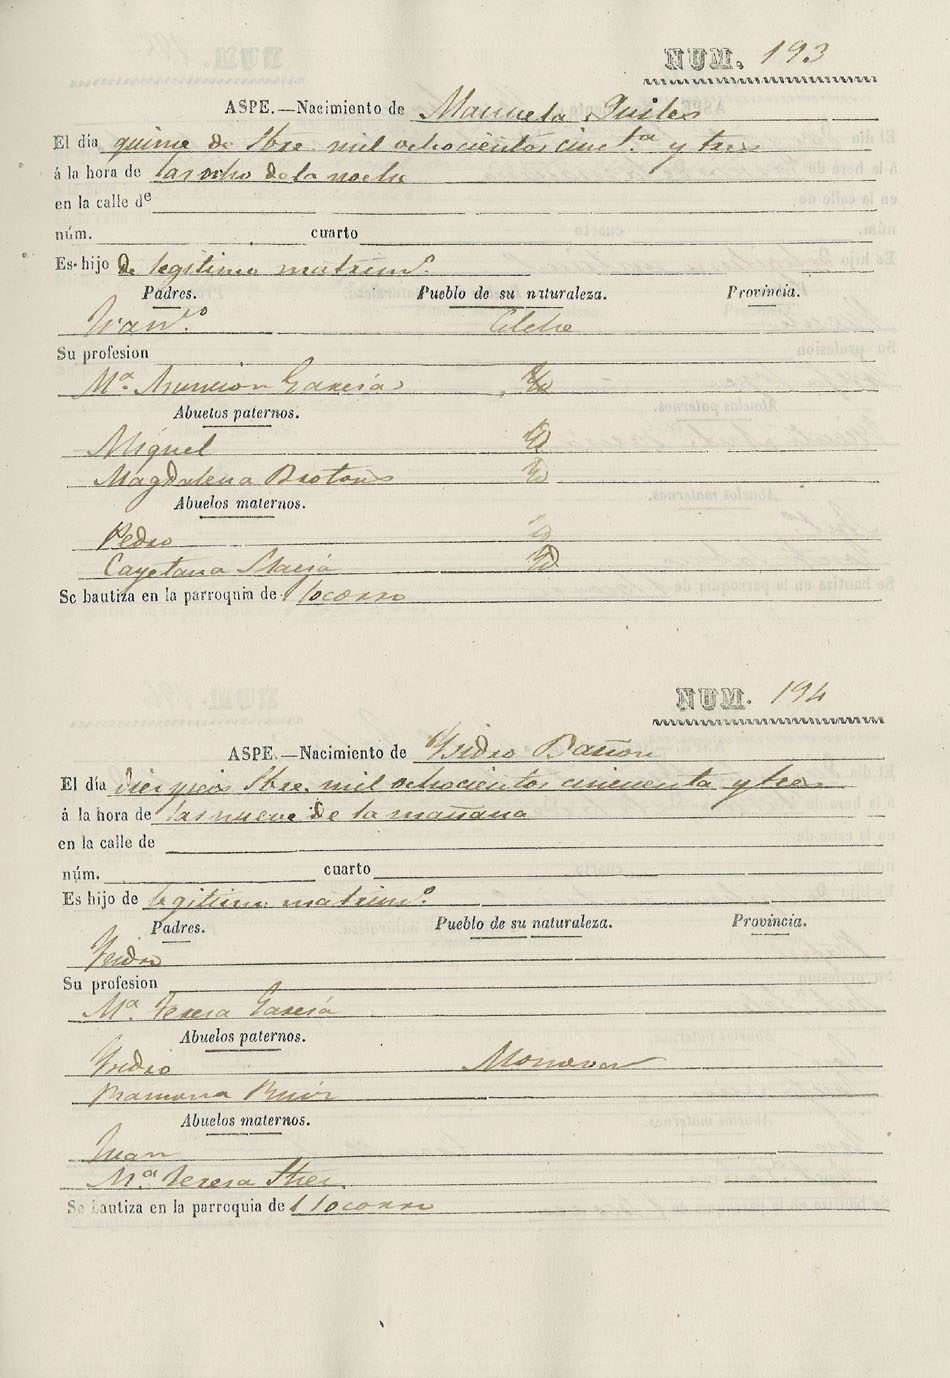 NUM. 193
ASPE.—Nacimiento de Manuela Quiles
El día quinze de 7bre. mil ochocientos cinct.ª y tres
á la hora de las ocho de la noche
en la calle de
núm. cuarto
Es hijo de legitimo matrim.º
Padres. Pueblo de su naturaleza. Provincia.
Fran.co Elche
Su profesion
M.ª Asuncion Garcia Yd
Abuelos paternos.
Miguel Yd
Magdalena Brotons Yd
Abuelos maternos.
Pedro Yd
Cayetana Yd
Se bautiza en la parroquia del Socorro
NUM. 194
ASPE.—Nacimiento de Ysidro Bañon
El día diez y seis 7bre. mil ochocientos cincuenta y tres
á la hora de las nueve de la mañana
en la calle de
núm. cuarto
Es hijo de legitimo matrim.º
Padres. Pueblo de su naturaleza. Provincia.
Ysidro
Su profesion
M.ª Teresa Garcia
Abuelos paternos.
Ysidro Monovar
Ramona
Abuelos maternos.
Juan
M.ª Teresa
Se bautiza en la parroquia de l Socorro